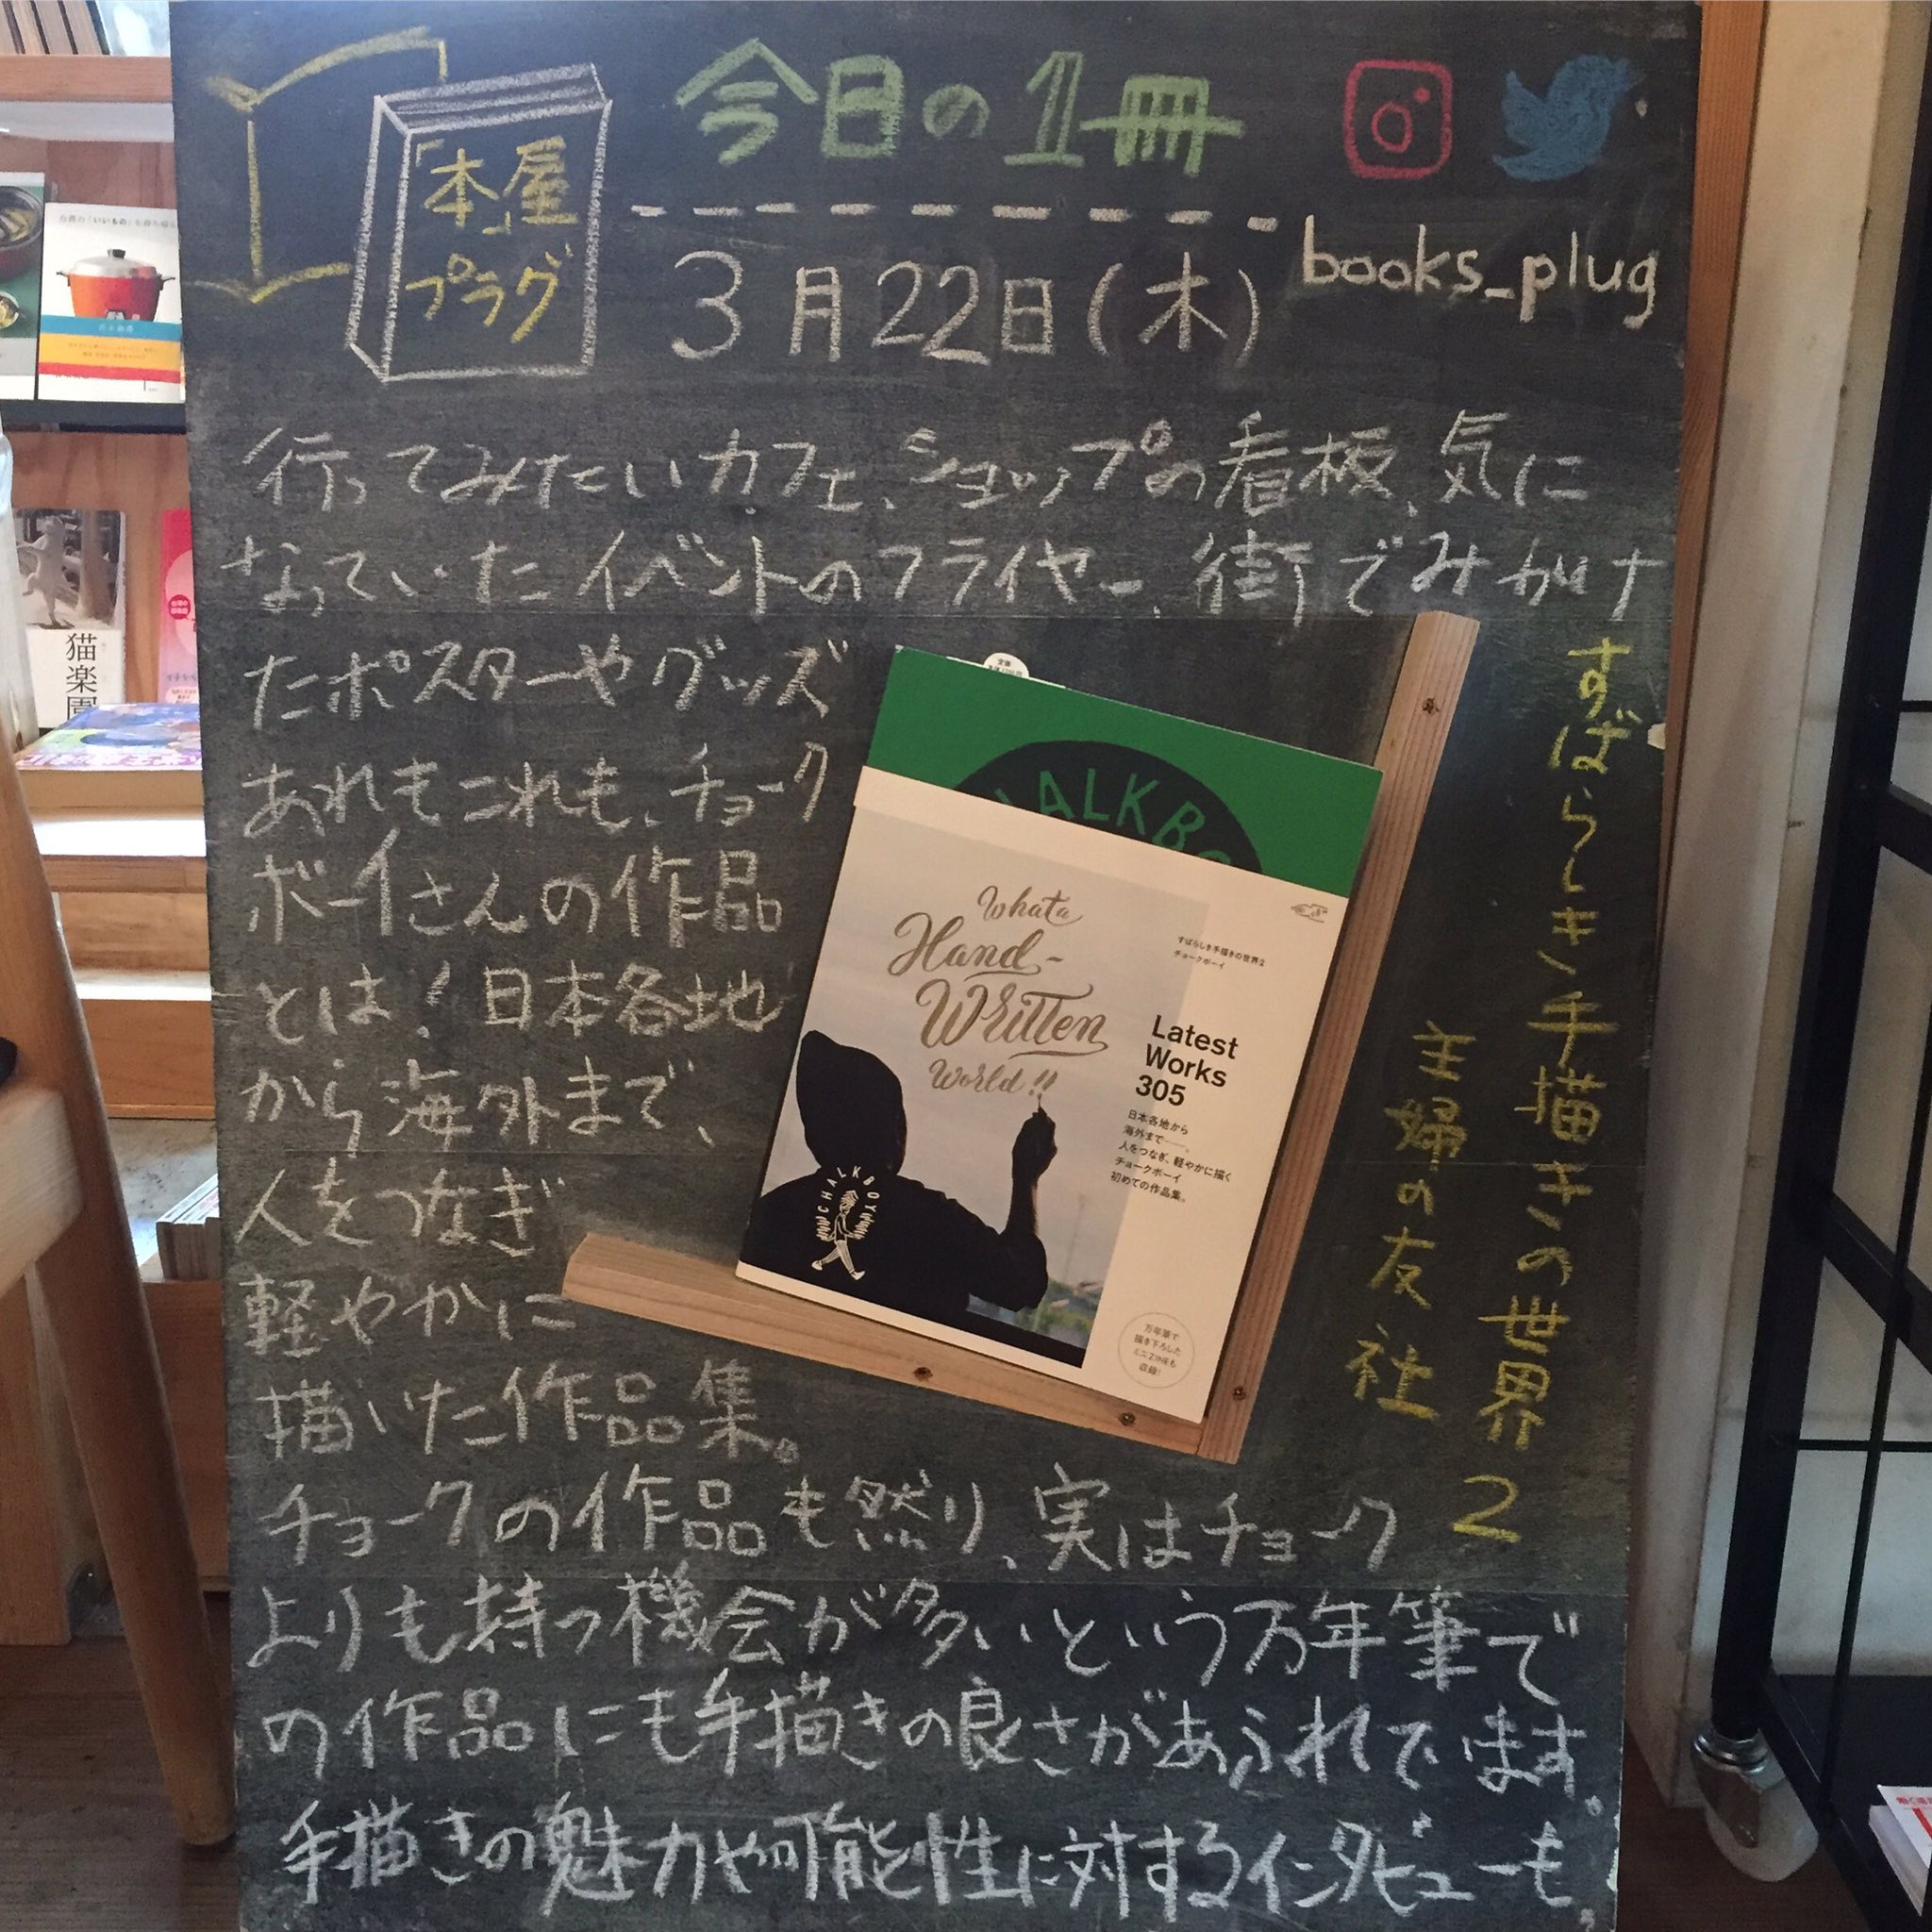 「本」屋
プラグ
今日の1冊
3月22日(木)
books_plug
行ってみたいカフェ、ショップの看板、気に
なっていたイベントのフライヤー、街でみかけ
たポスターやグッズ
あれもこれも、チョーク
ボーイさんの作品
とは!日本各地
から海外まで、
人をつなぎ
軽やかに
描いた作品集。
チョークの作品も然り、実はチョーク
よりも持つ機会が多いという万年筆で
の作品にも手描きの良さがあふれてます。
手描きの魅力や可能性に対するインタビューも!
すばらしき手描きの世界2
主婦の友社
HALKBO
What a
Hand-
Written
World!!
すばらしき手描きの世界2
チョークボーイ
Latest
Works
305
日本各地から
海外まで——。
人をつなぎ、軽やかに描く
チョークボーイ
初めての作品集。
CHALKBOY
万年筆で
描き下ろした
ミニZINEも
収録!
猫楽園